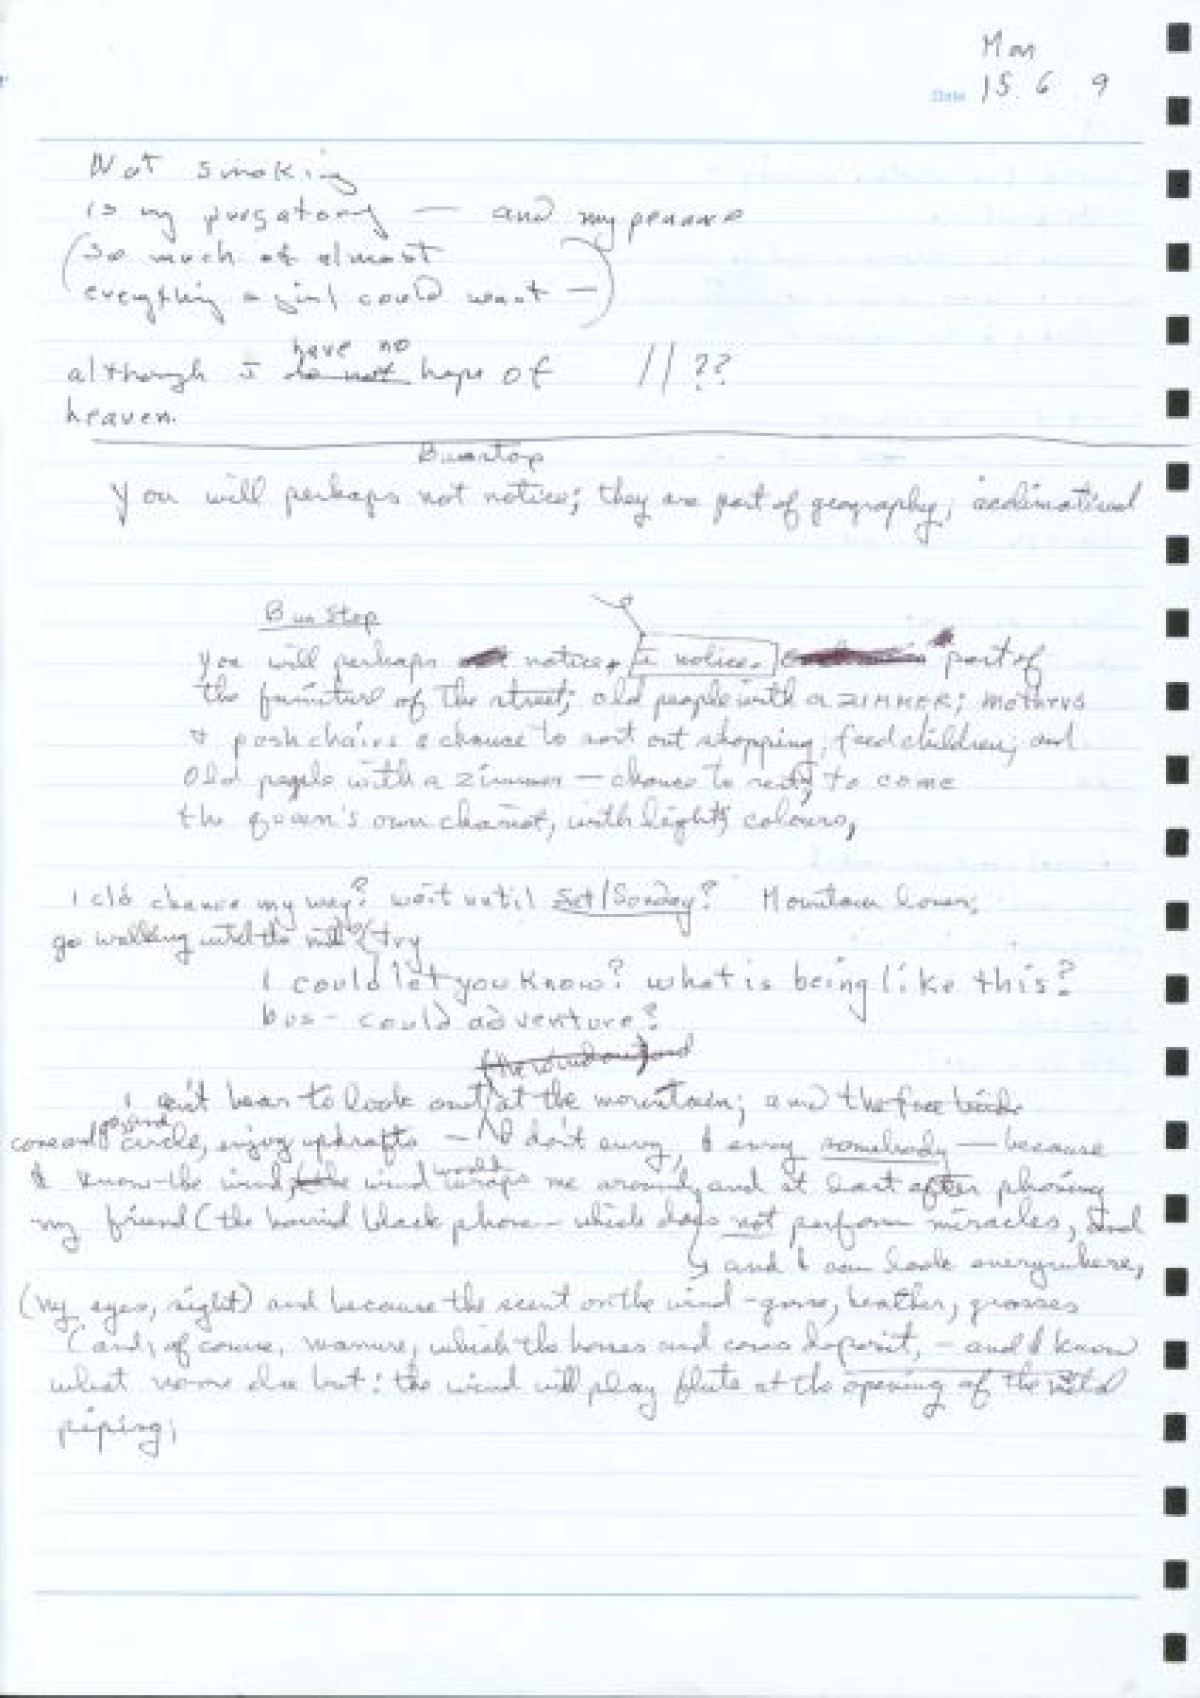 Mon
Date 15. 6 9
Not smoking
is my purgatory — and my penance
(so much of almost
everything a girl could want —)
have no
although I do not hope of // ??
heaven.
Bus stop
You will perhaps not notice; they are part of geography; acclimatised
Bus Stop
You will perhaps notice. I notice. part of
the furniture of the street; old people with a ZIMMER; mothers
& pushchairs a chance to sort out shopping, feed children; and
old people with a zimmer — chance to rest, to come
the queen's own chariot, with lights, colours,
I cld chance my way? wait until Sat/Sunday? Mountain lover;
go walking until the try
I could let you know? what is being like this?
bus - could adventure?
(the window) and
I can't bear to look out at the mountain; and the free birds
go and
come and circle, enjoy updrafts — I don't envy, I envy somebody — because
would
I know the wind, the wind wraps me around, and at last after phoning
my friend (the horrid black phone - which does not perform miracles, and
and I can look everywhere,
(my eyes, sight) and because the scent on the wind - gorse, heather, grasses
(and, of course, manure, which the horses and cows deposit, - and I know
what none else but: the wind will play flute at the opening of the metal
piping;